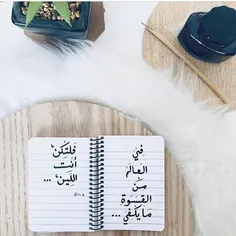 في
العالم
من
القسوة
ما يكفي ...
فلتكن
أنت
اللين ...